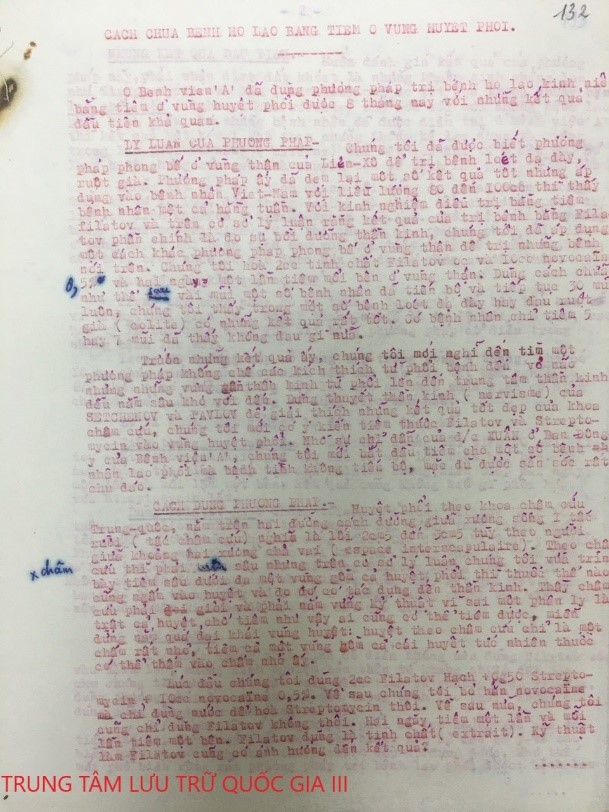 - 2 -
132
CÁCH CHỮA BỆNH HO LAO BẰNG TIÊM Ở VÙNG HUYỆT PHỔI.
Ở Bệnh viện 'A' đã dùng phương pháp trị bệnh ho lao kinh niên
bằng tiêm ở vùng huyệt phổi được 8 tháng nay với những kết quả
đầu tiên khả quan.
LÝ LUẬN CỦA PHƯƠNG PHÁP- Chúng tôi đã được biết phương
pháp phong bế ở vùng thận của Liên-Xô để trị bệnh loét dạ dày,
ruột già. Phương pháp ấy đã đem lại một số kết quả tốt nhưng áp
dụng vào bệnh nhân Việt-Nam với liều lượng 80 đến 100cc thì thấy
bệnh nhân mệt cả hàng tuần. Với kinh nghiệm điều trị bằng tiêm
filatov và trên cơ sở lý luận rằng kết quả của trị bệnh bằng Fila
tov phần chính là do sự bồi dưỡng thần kinh, chúng tôi đã áp dụng
một cách khác phương pháp phong bế ở vùng thận để trị những bệnh
nói trên. Chúng tôi hoà 2cc tinh chất Filatov với 10cc novocaine
0,5% và hai ngày một lần tiêm mỗi bên ở vùng thận. Dùng cách chích
như thế sau vài mũi một số bệnh nhân đã tiến bộ và tiếp tục
luôn, chúng tôi thấy trong một số bệnh loét dạ dày hay đau ruột
già ( colite) có những kết quả rất tốt. Có bệnh nhân chỉ tiêm 5
hay 7 mũi đã thấy không đau gì nữa.
Trước những kết quả ấy, chúng tôi mới nghĩ đến tìm một
phương pháp không chế các kích thích từ phổi bệnh đến vỏ não
những chứng thần kinh từ phổi lên đến trung tâm thần kinh
đều nằm cầu khỏ với đến. Dùng thuyết thần kinh ( nervisme) của
SETCHENOV và PAVLOV để giải thích những kết quả tốt đẹp của khoa
châm cứu, chúng tôi mới có ý kiến tiêm thuốc Filatov và Strepto-
mycin vào vùng huyệt phổi. Nhờ sự chỉ dẫn của đ/c XUÂN ở Ban Đông
y của Bệnh viện 'A', chúng tôi mới bắt đầu tiêm cho một số bệnh
nhân lao phổi mà bệnh tình không tiến bộ, mặc dù được săn sóc rất
chu đáo.
CÁCH DÙNG PHƯƠNG PHÁP.- Huyệt phổi theo khoa châm cứu
Trung-quốc, nằm trên hai đường cách đường giữa xương sống 1 tấc
rưỡi ( tấc châm cứu) nghĩa là lối 2cm5 đến 3cm5 tuỳ theo người,
giữa khoảng hai xương chả vai ( espace interscapulaire). Theo châm
cứu thì phải châm sâu nhưng trên cơ sở lý luận, chúng tôi
x châm
tiêm sâu dưới da một vùng gồm cả huyệt phổi thì thuốc thế nào
cũng ngấm vào huyệt và do đó có tác dụng đến thần kinh. Thầy châm
cứu phải giỏi và phải nắm vững kỹ thuật vì sai một phân ly
trật cả huyệt, chớ tiêm như vậy ai cũng có thể tiêm được, miễn
đúng đại khái vùng huyệt: huyệt theo châm cứu chỉ là một
chấm rất nhỏ, tiêm cả một vùng gồm cả cái huyệt tức nhiên thuốc
có thể thấm vào chấm nhỏ ấy.
Lúc đầu chúng tôi dùng 2cc Filatov Hạch + 0g50 Strepto-
mycin + 10cc novocaine 0,5%. Về sau chúng tôi bỏ hẳn novocaine
mà chỉ dùng nước để hoà Streptomycin thôi. Về sau nữa, chúng tôi
cũng chỉ dùng Filatov không thôi. Hai ngày, tiêm một lần và mỗi
lần tiêm một bên. Filatov dùng là tinh chất( extrait). Kỹ thuật
làm Filatov cũng có ảnh hưởng đến kết quả?
.......
TRUNG TÂM LƯU TRỮ QUỐC GIA III